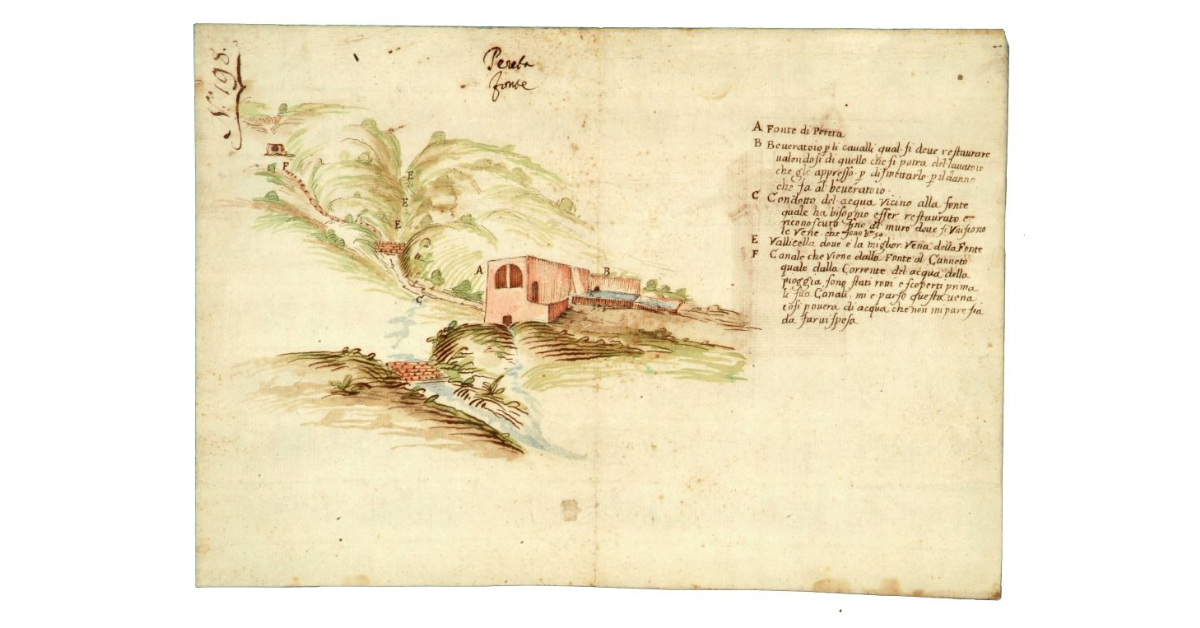 N.° 198.
Pereta
fonte
A Fonte di Pereta
B Beveratoio p li cavalli qual si deve restaurare
valendosi di quello che si potrà del lavatoio
che gl'è appresso p disfittuarlo p il danno
che fa al beveratoio.
C Condotto del acqua vicino alla fonte
quale ha bisognio esser restaurato e
riconosciuto fino al muro dove si Uniscono
le vene che sono
E Vallicella dove è la miglior Vena della Fonte
F Canale che viene dalla Fonte al Canneto
quale dalla Corrente del acqua della
pioggia sono stati roti e scoperti prima
li sua Canali, mi è parso questa vena
così povera di acqua che non mi pare sia
da farvi spesa
F
E
E
E
C
A
B
C